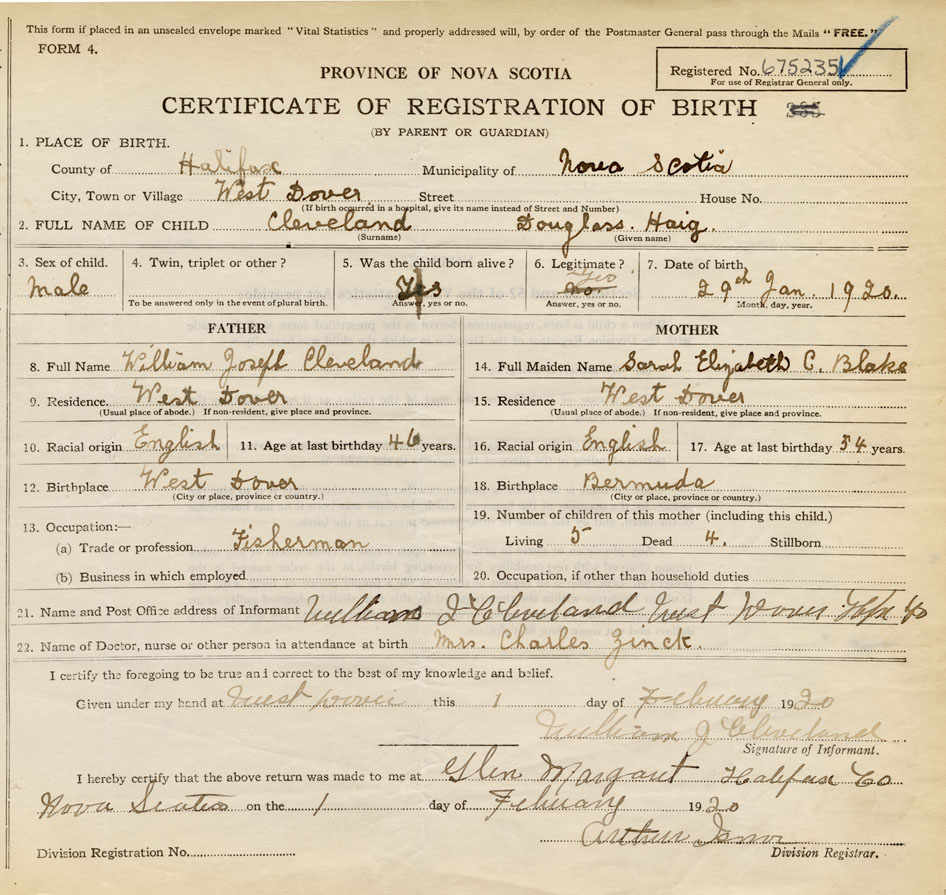 This form if placed in an unsealed envelope marked "Vital Statistics" and properly addressed will, by order of the Postmaster General pass through the Mails "FREE."
FORM 4.
Registered No. 675235
For use of Registrar General only.
PROVINCE OF NOVA SCOTIA
CERTIFICATE OF REGISTRATION OF BIRTH
(BY PARENT OR GUARDIAN)
1. PLACE OF BIRTH.
County of Halifax Municipality of Nova Scotia
City, Town or Village West Dover Street House No.
(If birth occurred in a hospital, give its name instead of Street and Number)
2. FULL NAME OF CHILD Cleveland Douglass. Haig.
(Surname) (Given name)
3. Sex of child. 4. Twin, triplet or other ? 5. Was the child born alive ? 6. Legitimate ? 7. Date of birth
Male Yes Yes no. 29th Jan. 1920.
To be answered only in the event of plural birth. Answer, yes or no. Answer, yes or no. Month, day, year.
FATHER MOTHER
8. Full Name William Joseph Cleveland 14. Full Maiden Name Sarah Elizabeth C. Blake
9. Residence. West Dover 15. Residence West Dover
(Usual place of abode.) If non-resident, give place and province. (Usual place of abode.) If non-resident, give place and province.
10. Racial origin English 11. Age at last birthday 46 years. 16. Racial origin English 17. Age at last birthday 34 years.
12. Birthplace West Dover 18. Birthplace Bermuda
(City or place, province or country.) (City or place, province or country.)
13. Occupation:— 19. Number of children of this mother (including this child.)
(a) Trade or profession Fisherman Living 5 Dead 4. Stillborn
(b) Business in which employed 20. Occupation, if other than household duties
21. Name and Post Office address of Informant William J Cleveland West Dover Hfx Co
22. Name of Doctor, nurse or other person in attendance at birth Mrs. Charles Zinck.
I certify the foregoing to be true and correct to the best of my knowledge and belief.
Given under my hand at West Dover this 1 day of February 1920
William J Cleveland
Signature of Informant.
I hereby certify that the above return was made to me at Glen Margaret Halifax Co
Nova Scotia on the 1 day of February 1920
Arthur
Division Registration No. Division Registrar.